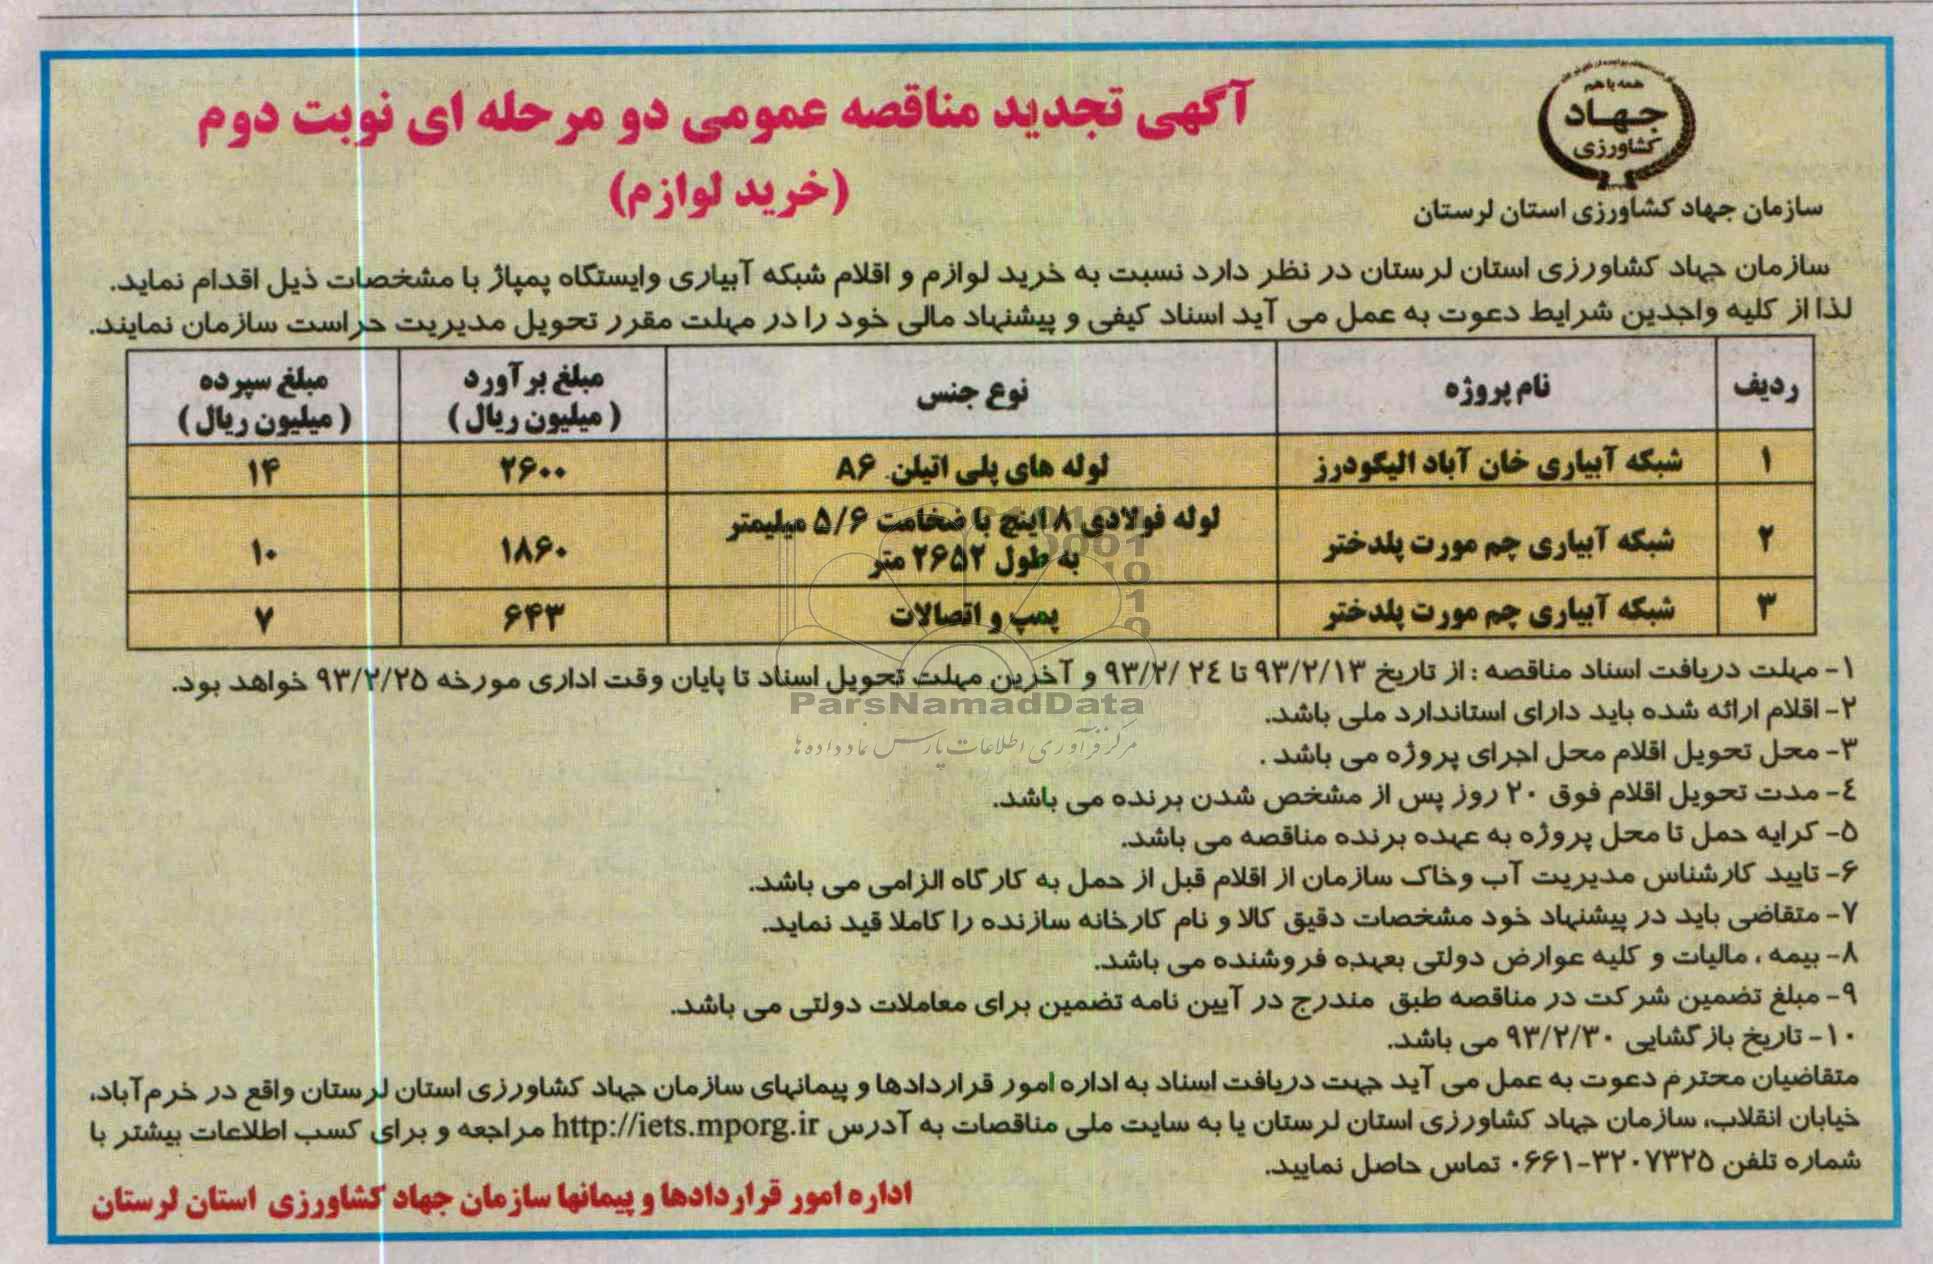 همه با هم
جهاد
کشاورزی
سازمان جهاد کشاورزی استان لرستان
آگهی تجدید مناقصه عمومی دو مرحله ای نوبت دوم
(خرید لوازم)
سازمان جهاد کشاورزی استان لرستان در نظر دارد نسبت به خرید لوازم و اقلام شبکه آبیاری وایستگاه پمپاژ با مشخصات ذیل اقدام نماید.
لذا از کلیه واجدین شرایط دعوت به عمل می آید اسناد کیفی و پیشنهاد مالی خود را در مهلت مقرر تحویل مدیریت حراست سازمان نمایند.
ردیف نام پروژه نوع جنس مبلغ برآورد (میلیون ریال) مبلغ سپرده (میلیون ریال)
۱ شبکه آبیاری خان آباد الیگودرز لوله های پلی اتیلن A۶ ۲۶۰۰ ۱۴
۲ شبکه آبیاری چم مورت پلدختر لوله فولادی ۸ اینچ با ضخامت ۵/۶ میلیمتر به طول ۲۶۵۲ متر ۱۸۶۰ ۱۰
۳ شبکه آبیاری چم مورت پلدختر پمپ و اتصالات ۶۴۳ ۷
۱- مهلت دریافت اسناد مناقصه : از تاریخ ۹۳/۲/۱۳ تا ۲٤ /۹۳/۲ و آخرین مهلت تحویل اسناد تا پایان وقت اداری مورخه ۹۳/۲/۲۵ خواهد بود.
ParsNamadData
۲- اقلام ارائه شده باید دارای استاندارد ملی باشد.
مرکز فرآوری اطلاعات پارس نماد داده ها
۳- محل تحویل اقلام محل اجرای پروژه می باشد .
٤- مدت تحویل اقلام فوق ۲۰ روز پس از مشخص شدن برنده می باشد.
۵- کرایه حمل تا محل پروژه به عهده برنده مناقصه می باشد.
۶- تایید کارشناس مدیریت آب وخاک سازمان از اقلام قبل از حمل به کارگاه الزامی می باشد.
۷- متقاضی باید در پیشنهاد خود مشخصات دقیق کالا و نام کارخانه سازنده را کاملا قید نماید.
۸- بیمه ، مالیات و کلیه عوارض دولتی بعهده فروشنده می باشد.
۹- مبلغ تضمین شرکت در مناقصه طبق مندرج در آیین نامه تضمین برای معاملات دولتی می باشد.
۱۰- تاریخ بازگشایی ۹۳/۲/۳۰ می باشد.
متقاضیان محترم دعوت به عمل می آید جهت دریافت اسناد به اداره امور قراردادها و پیمانهای سازمان جهاد کشاورزی استان لرستان واقع در خرم‌آباد،
خیابان انقلاب، سازمان جهاد کشاورزی استان لرستان یا به سایت ملی مناقصات به آدرس http://iets.mporg.ir مراجعه و برای کسب اطلاعات بیشتر با
شماره تلفن ۳۲۰۷۳۲۵-۰۶۶۱ تماس حاصل نمایید.
اداره امور قراردادها و پیمانها سازمان جهاد کشاورزی استان لرستان